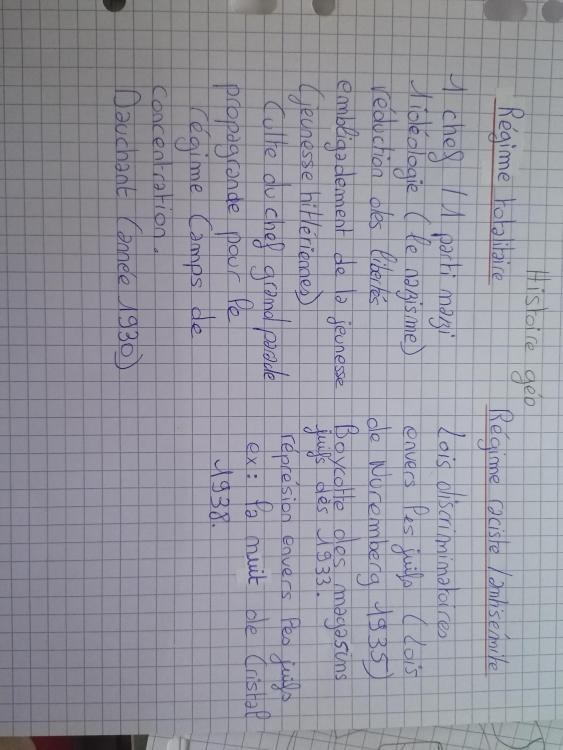 Histoire géo
Régime totalitaire
1 chef / 1 parti nazi
1 idéologie (le nazisme)
réduction des libertés
embligadement de la jeunesse
(jeunesse hitlériennes)
Culte du chef grand parade
propagrande pour le
régime Camps de
concentration.
Dauchant (année 1930)
Régime raciste / antisémite
Lois discriminatoires
envers les juifs (Lois
de Nuremberg 1935)
Boycotte des magasins
juifs dès 1933.
réprésion envers les juifs
ex : la nuit de Cristal
1938.